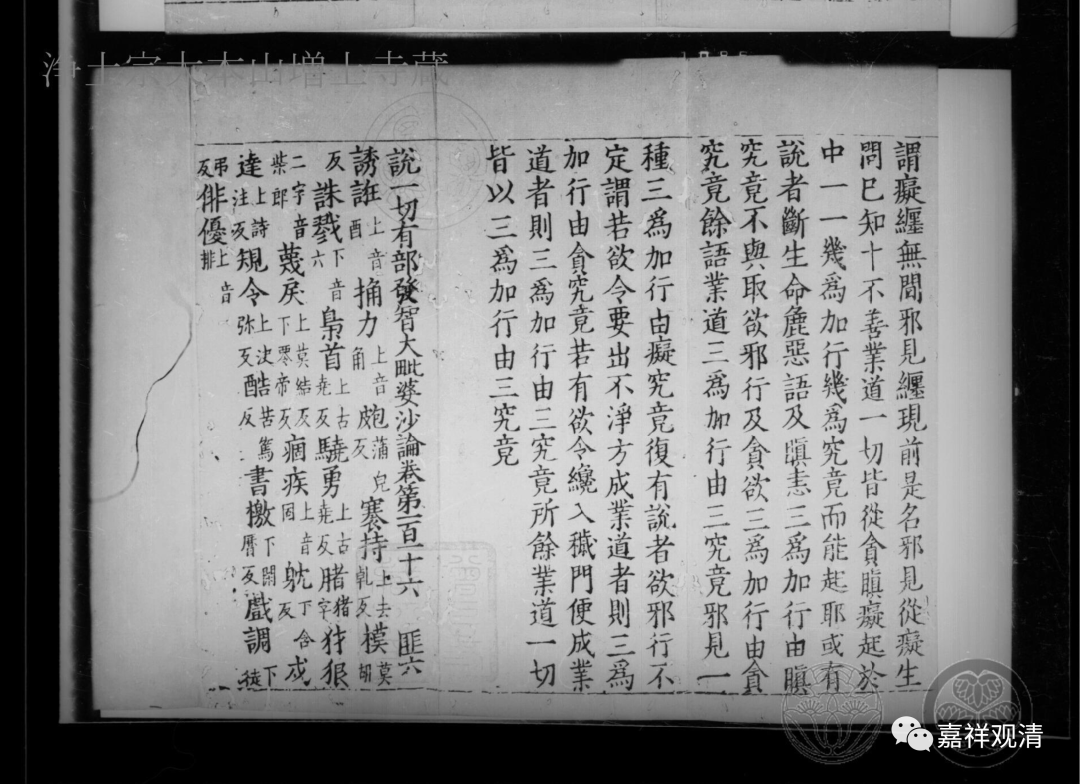 浄土宗大本山増上寺蔵
謂癡纏無間邪見纏現前是名邪見從癡生
問巳知十不善業道一切皆從貪瞋癡起於
中一一幾爲加行幾爲究竟而能起耶或有
說者斷生命麁惡語及瞋恚三爲加行由瞋
究竟不與取欲邪行及貪欲三爲加行由貪
究竟餘語業道三爲加行由三究竟邪見一
種三爲加行由癡究竟復有說者欲邪行不
定謂若欲令要出不淨方成業道者則三爲
加行由貪究竟若有欲令纔入穢門便成業
道者則三爲加行由三究竟所餘業道一切
皆以三爲加行由三究竟
說一切有部發智大毗婆沙論卷第一百一十六 匪六
誘誑上音酉 捔力上音角 皰蒲皃反 搴持上去乾反 模莫胡
反 誅戮下音六 梟首上古堯反 驍勇上古堯反 䐗猪字 犲狼
二字音柴郎 蔑戾上莫結反下零帝反 痼疾上音固 躭下含反 戍
達上詩注反 䂓令上 弥反 酷苦篤反 書檄下閑曆反 戲調下徒
弔反 俳優上音排
嘉祥观清